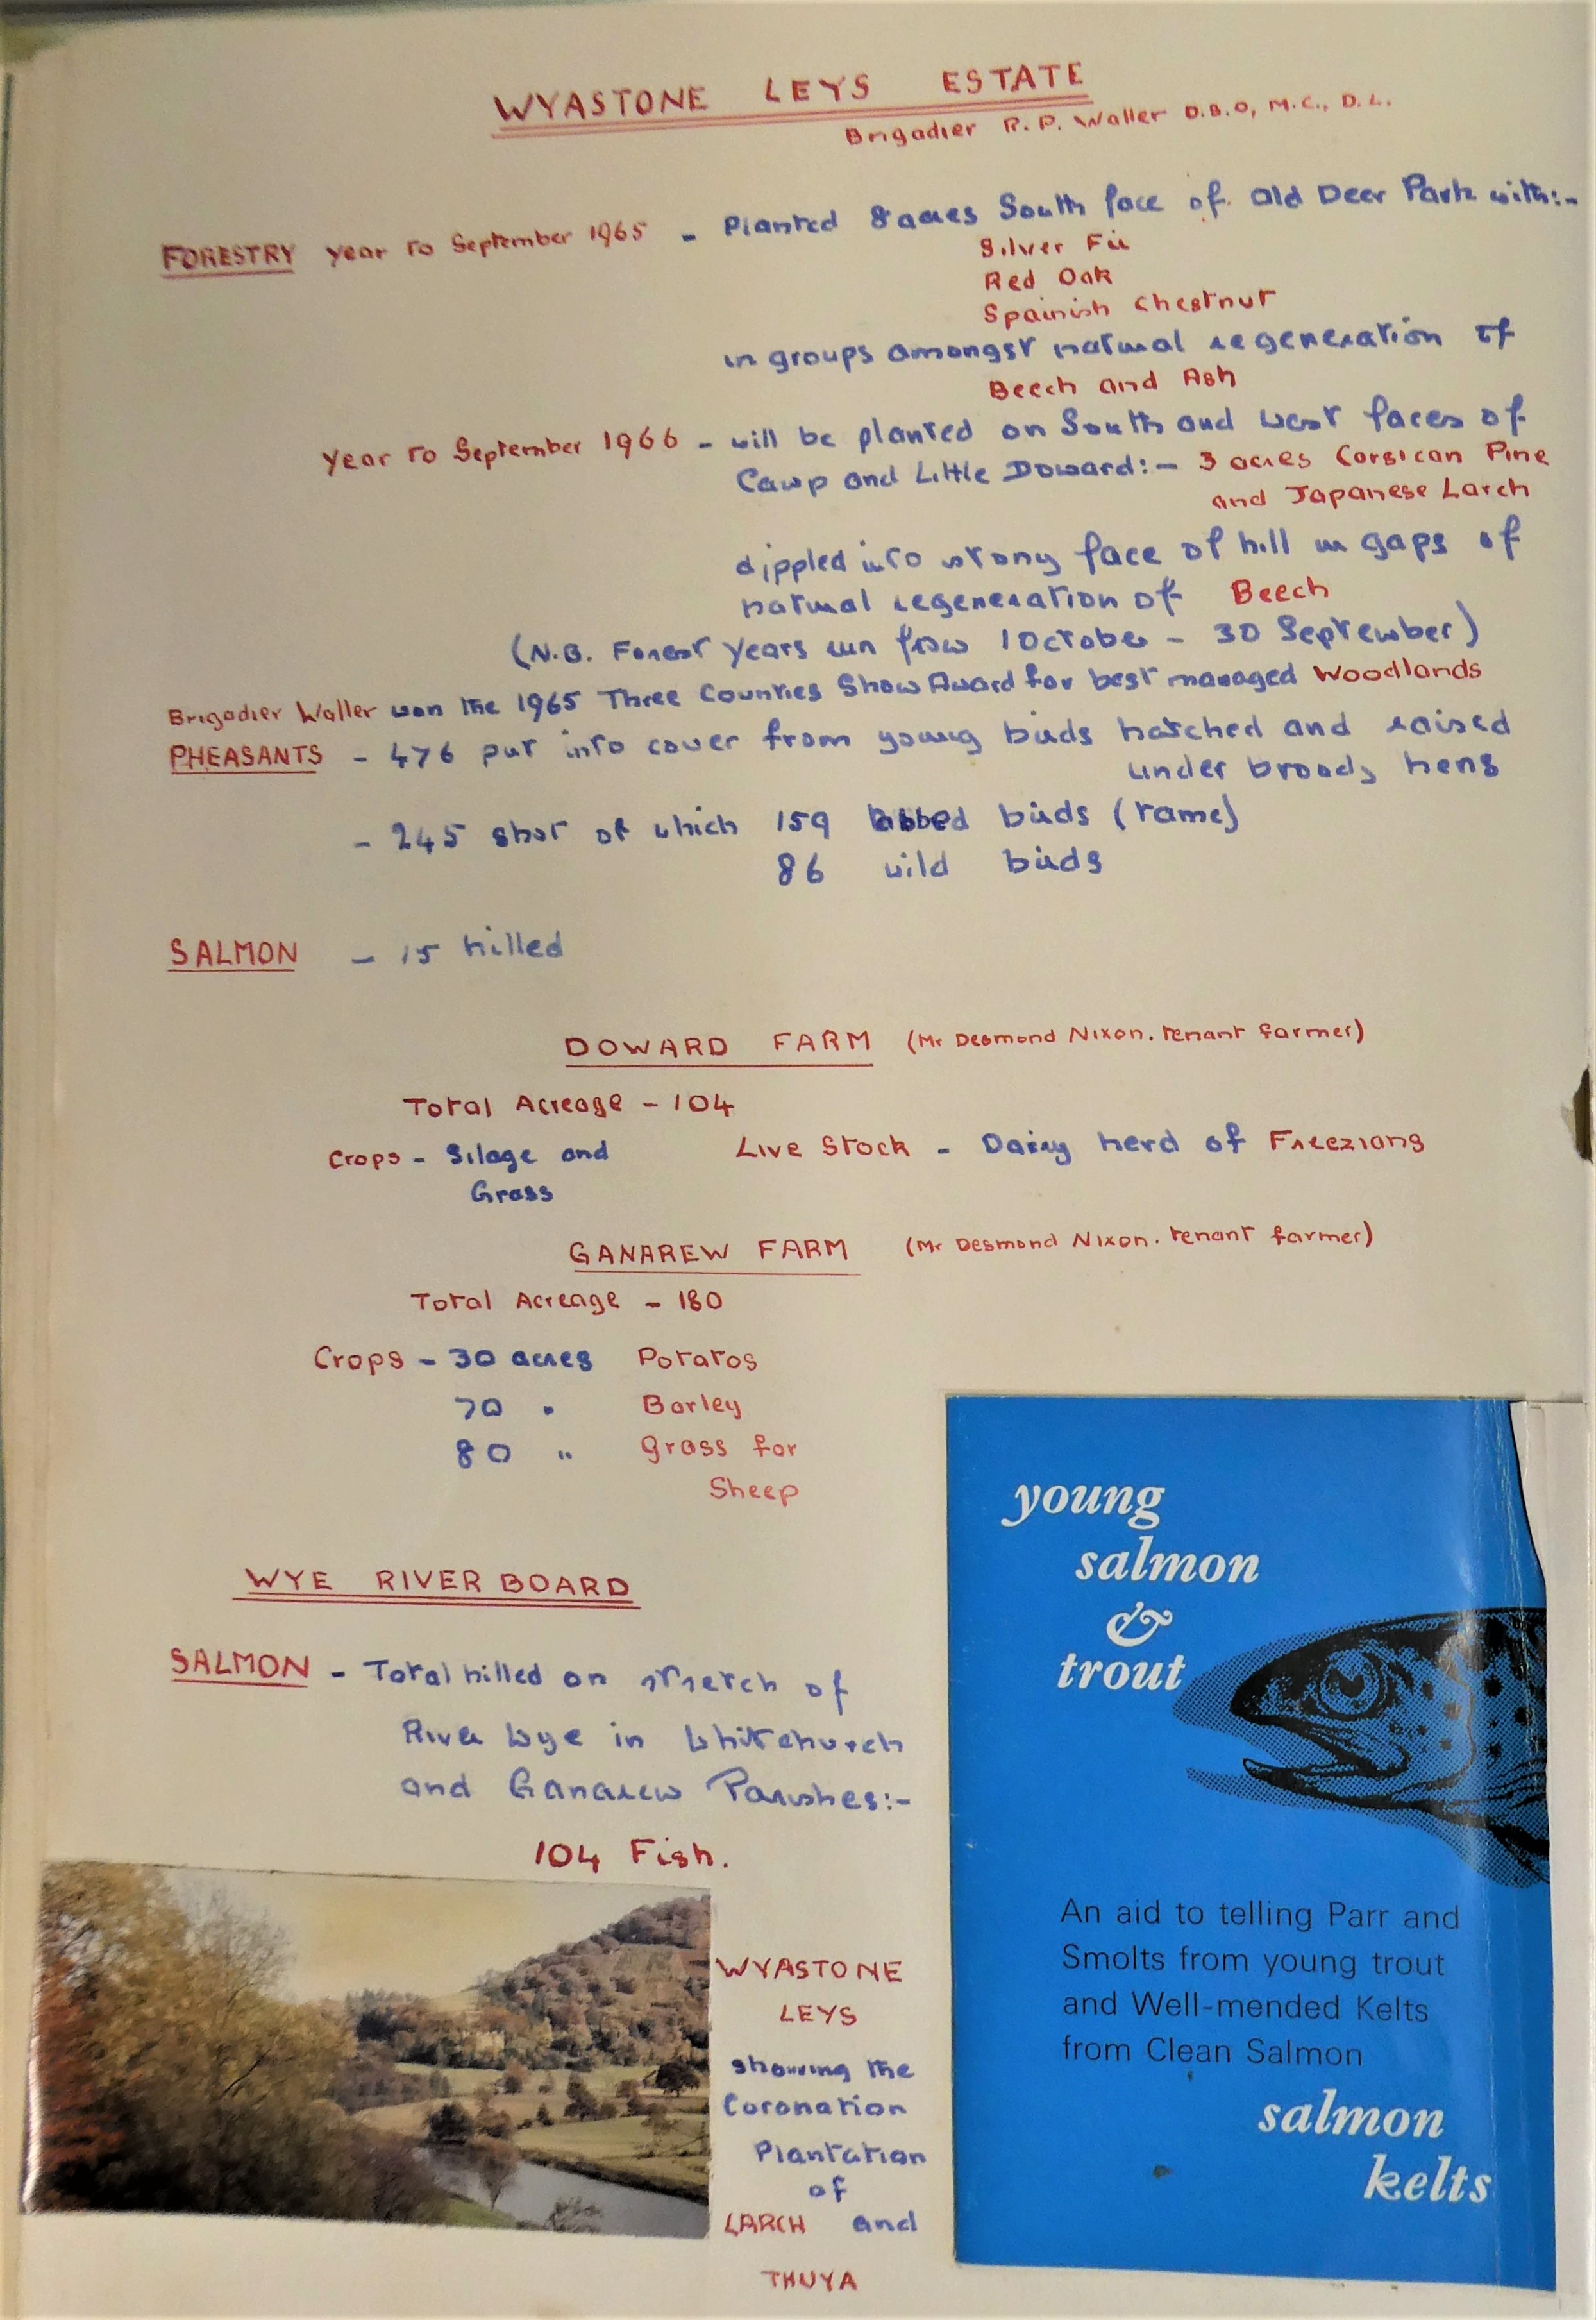 WYASTONE LEYS ESTATE
Brigadier R. P. Waller D.S.O, M.C., D.L.
FORESTRY year to September 1965 - Planted 8 acres South face of Old Deer Park with:-
Silver Fir
Red Oak
Spainish Chestnut
in groups amongst natural regeneration of
Beech and Ash
Year to September 1966 - will be planted on South and West faces of
Camp and Little Doward:- 3 acres Corsican Pine
and Japanese Larch
dippled into stony face of hill in gaps of
natural regeneration of Beech
(N.B. Forest Years run from 1 October - 30 September)
Brigadier Waller won the 1965 Three Counties Show Award for best managed Woodlands
PHEASANTS - 476 put into cover from young birds hatched and raised
under broody hens
- 245 shot of which 159 birds (tame)
86 wild birds
SALMON - 15 killed
DOWARD FARM (Mr Desmond Nixon. tenant farmer)
Total Acreage - 104
Crops - Silage and Live Stock - Dairy herd of Freezians
Grass
GANAREW FARM (Mr Desmond Nixon. tenant farmer)
Total Acreage - 180
Crops - 30 acres Potatos
70 " Barley
80 " grass for
Sheep
WYE RIVER BOARD
SALMON - Total killed on stretch of
River Wye in Whitchurch
and Ganarew Parishes:-
104 Fish.
WYASTONE
LEYS
showing the
Coronation
Plantation
of
LARCH and
THUYA
young
salmon
&
trout
An aid to telling Parr and
Smolts from young trout
and Well-mended Kelts
from Clean Salmon
salmon
kelts